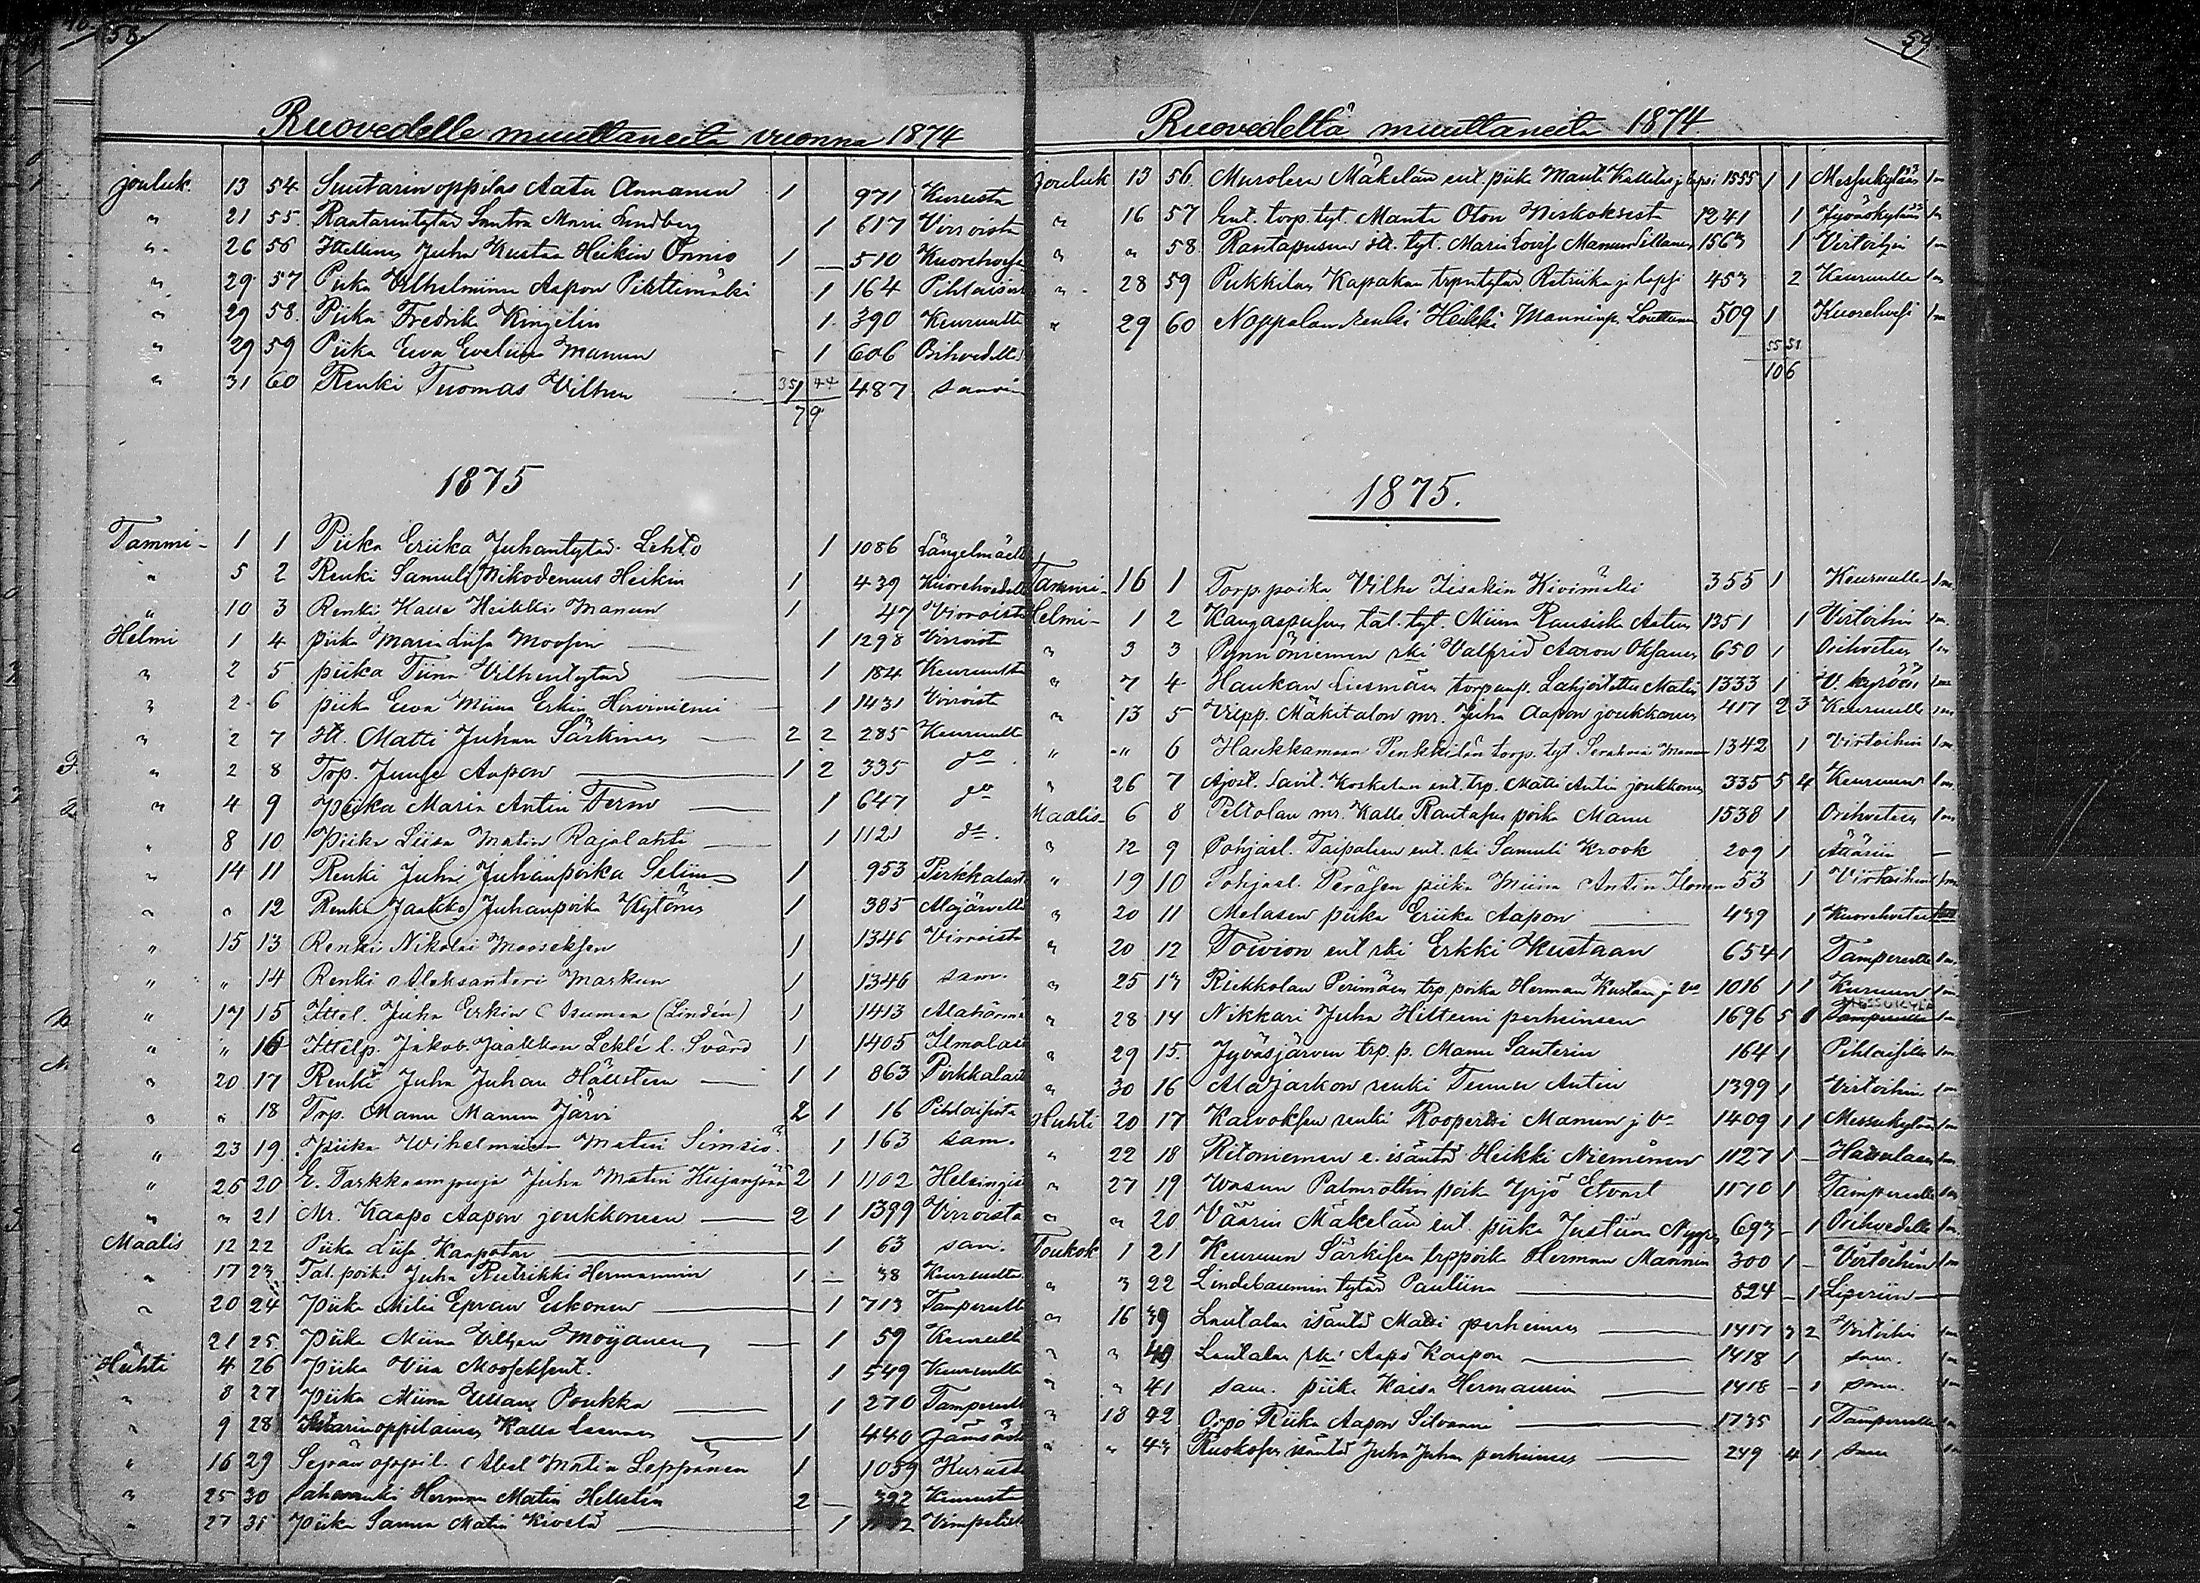 58.
Ruovedelle muuttaneita vuonna 1874
jouluk. 13 54 Suutarin oppilas Aatu Annanen 1 971 Kurusta
" 21 55. Raatarintytär Santra Maria Lindberg 1 617 Virroista
" 26 56 Ittellinen Juha Kustaa Heikin Onnio 1 — 510 Kuorehve
" 29 57 Piika Vilhelmiina Aapon Pihttimäki 1 164 Pihlaisis
" 29 58. Piika Fredrika Kinzelin 1 390 Keuruulta
" 29 59 Piika Eva Eveliina Manun 1 606 Orihvedelt
" 31 60 Renki Tuomas Vilhen 1 487 samoin
35 44
79
1875
Tammi- 1 1 Piika Eriika Juhantytär Lehto 1 1086 Längelmäelt
" 5 2 Renki Samuli Nikodemus Heikin 1 439 Kuorehvedelt
" 10 3 Renki Kalle Heikki Manun 1 47 Virroista
Helmi 1 4 piika Maria Liisa Moosen 1 1298 Virroist
" 2 5 piika Tiina Vilhentytär 1 184 Keuruult
" 2 6 piika Eva Miina Erkin Hirviniemi 1 1431 Virroist
" 2 7 itt. Matti Juhan Särkinen 2 2 285 Keuruult
" 2 8 Trp. Junge Aapon 1 2 335 do
" 4 9 Piika Maria Antin Term 1 647 do
" 8 10 Piika Liisa Matin Rajalahti 1 1121 do.
" 14 11 Renki Juha Juhanpoika Seliin 1 953 Pirkkalast
" " 12 Renki Jaakko Juhanpoika Kytönen 1 385 Alajärvelt
" 15 13 Renki Nikolai Mooseksen 1 1346 Virroista
" " 14 Renki Aleksanteri Markun 1 1346 sam.
" 17 15 Ittel. Juha Erkin Asuman (Lindén) 1 1413 Alahärmä
" " 16 Ittelp. Jakob Jaakkon Leklé l. Svärd 1 1405 Ilmolas
" 20 17 Renki Juha Juhan Hällsten 1 1 863 Pirkkalast
" " 18 Trp. Manu Manun Järvi 2 1 16 Pihlajista
" 23 19. Piika Wihelmiina Matin Simsiö 1 163 sam.
" 26 20 E. Tarkkaampuja Juha Matin Kujanpää 2 1 1102 Helsingis
" " 21 Mr. Kaapo Aapon joukkoneen 2 1 1399 Virroista
Maalis 12 22 Piika Liisa Kaapotar 1 63 sam.
" 17 23 Tal. poik. Juha Retrikki Hermannin 1 — 38 Keuruulta
" 20 24 Piika Milia Epran Eskonen 1 713 Tampereelt
" 21 25 Piika Miina Vilhen Moijanen 1 59 Keuruulta
Huhti 4 26 Piika Viia Mooseksent. 1 549 Keuruulta
" 8 27 Piika Miina Ullan Poukka 1 270 Tampereelt
" 9 28 Suutarinoppilainen Kalle 1 440 Jämsäst
" 16 29 Sepän oppil. Abel Matin Leppänen 1 1059 Kurust
" 25 30 Herman Matin Hellstén 2 — 392
" 27 31 Piika Sanna Matin Kivelä 1 Vimpelist
59
Ruovedeltä muuttaneita 1874.
Jouluk 13 56. Murolen Mäkelän ent. piika Manta Kalletar j lapsi 1555 1 1 Messukylään 1m
" 16 57 Ent. torp. tyt. Manta Oton Niskoksesta 1241 1 Jyväskylään 1m
" " 58 Rantapusun itt. tyt. Maria Lovisa Manun Sillanen 1563 1 Virtoihin 1m
" 28 59 Pukkilan Kapakan trpntytär Retriika j lapsi 453 2 Keuruulle 1m
" 29 60 Noppalan renki Heikki Manninp. Louttunen 509 1 Kuorehvesi 1m
55 51
106
1875.
Tammi- 16 1 Torp. poika Vilhe Iisakin Kivimäki 355 1 Keuruulle 1m
Helmi- 1 2 Kangaspusun tal. tyt. Miina Rausiska Aatun 1351 1 Virtoihin 1m
" 3 3 Pynnöniemen rki Valfrid Aaron Oksanen 650 1 Orihveteen 1m
" 7 4 Haukan Liesmäen torpanp. Lahjoitettu Matin 1333 1 V. kyröön 1m
" 13 5 Vilpp. Mäkitalon mr. Juha Aapon joukkonens 417 2 3 Keuruulle 1m
" " 6 Haukkamaan Penkkilän torp. tyt. Serahvia Manun 1342 1 Virtoihin 1m
" 26 7 Ajost. Savil. Koskelan ent. trp. Matti Antin joukkonens 335 5 4 Keuruun 1m
Maalis- 6 8 Peltolan mr. Kalle Rantasen poika Manu 1538 1 Orihveteen 1m
" 12 9 Pohjasl. Taipaleen ent. rki Samuli Krook 209 1 Ätäriin —
" 19 10 Pohjasl. Peräsen piika Miina Antin Ilonen 53 1 Virtoihin 1m
" 20 11 Melasen piika Eriika Aapon 439 1 Kuorehvetee
" 20 12 Toivion ent rki Erkki Kustaan 654 1 Tampereelle 1m
" 25 13 Riekkolan Perimäen trp poika Herman Kustan j vo 1016 1 1 Kuruun 1m
" 28 14 Nikkari Juha Hilteeni perheineen 1696 5 8 Tampereelle MESSUKYLÄ 1m
" 29 15. Jyväsjärven trp. p. Manu Santerin 164 1 Pihlajisille 1m
" 30 16 Alajaskon renki Teemu Antin 1399 1 Virtoihin 1m
Huhti 20 17 Kalvoksen renki Roopertti Manun j vo 1409 1 1 Messukylään 1m
" 22 18 Ritoniemen e. isäntä Heikki Nieminen 1127 1 — Hattulaan 1m
" 27 19 Wasun Palmrothin poik Yrjö Etvart 1170 1 Tampereelle 1m
" " 20 Väärin Mäkelän ent. piika Justiina 693 — 1 Orihvedelle 1m
Toukok 1 21 Keuruun Särkisen trppoika Herman Mannin 300 1 — Virtoihin 1m
" 3 22 Lindebaumin tytär Pauliina 824 — 1 Liperiin —
" 16 39 Lautalan isäntä Matti perheineen 1417 3 2 Virtoihin 1m
" " 40 Lautalan rki Aapo Kaapon 1418 1 sam. 1m
" " 41 sam. piika Kaisa Hermannin 1418 — 1 sam. 1m
" 18 42 Orpo Riika Aapon Silvanni 1735 1 Tampereelle 1m
" " 43 Ruokosen isäntä Juha Juhan perheineen 249 4 1 sam 1m